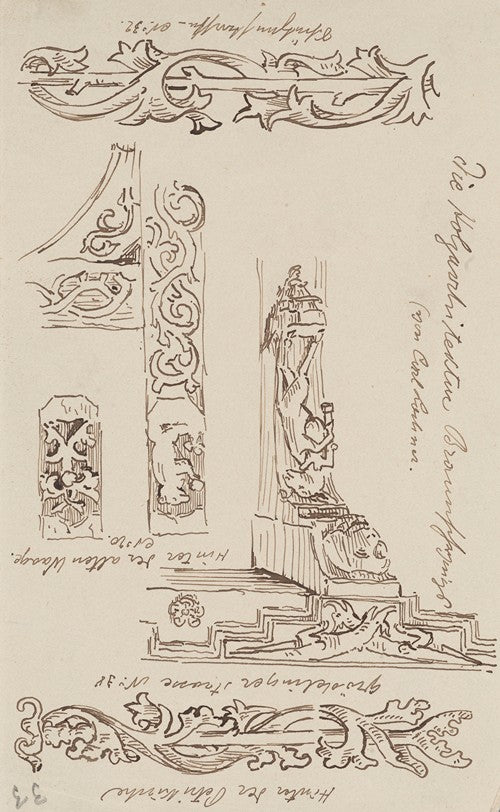 Die Holzarchitektur Braunschweigs
(von Carl Lachner.
No 32.
Hinter der alten Waage.
No 20.
Gördelinger strasse No 38
Hinter der Petrikirche
33